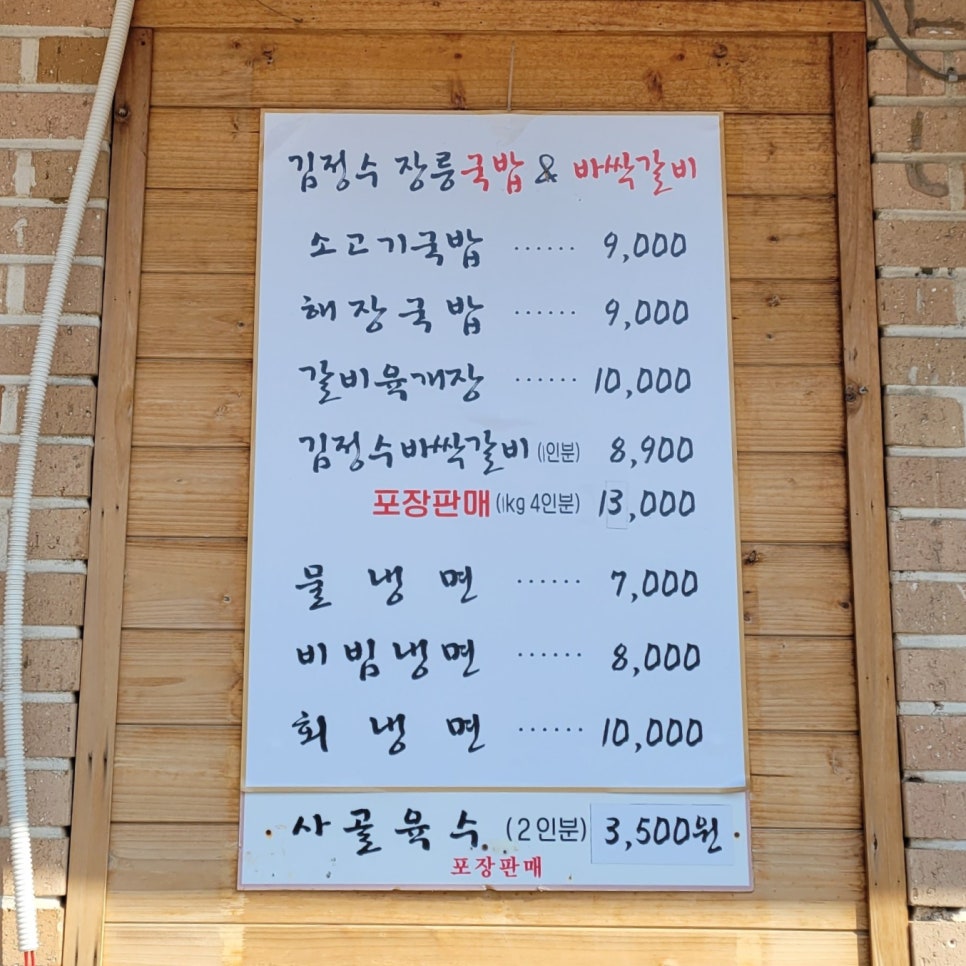 김정수 장릉국밥 & 바싹갈비
소고기국밥 ...... 9,000
해장국밥 ...... 9,000
갈비육개장 ...... 10,000
김정수바싹갈비 (1인분) 8,900
포장판매 (1kg 4인분) 13,000
물냉면 ...... 7,000
비빔냉면 ...... 8,000
회냉면 ...... 10,000
사골육수 (2인분) 3,500원
포장판매